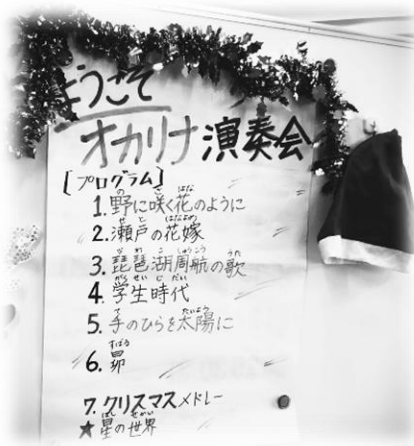 ようこそ
オカリナ演奏会
[プログラム]
1.野に咲く花のように
2.瀬戸の花嫁
3.琵琶湖周航の歌
4.学生時代
5.手のひらを太陽に
6.昴
7.クリスマスメドレー
★星の世界